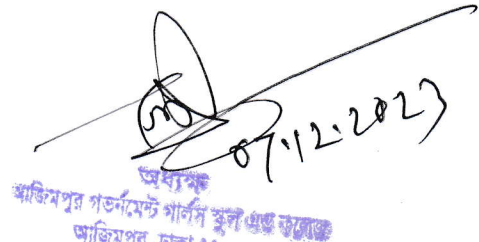 07.12.2023
অধ্যক্ষ
আজিমপুর গভর্নমেন্ট গার্লস স্কুল এন্ড কলেজ
আজিমপুর, ঢাকা